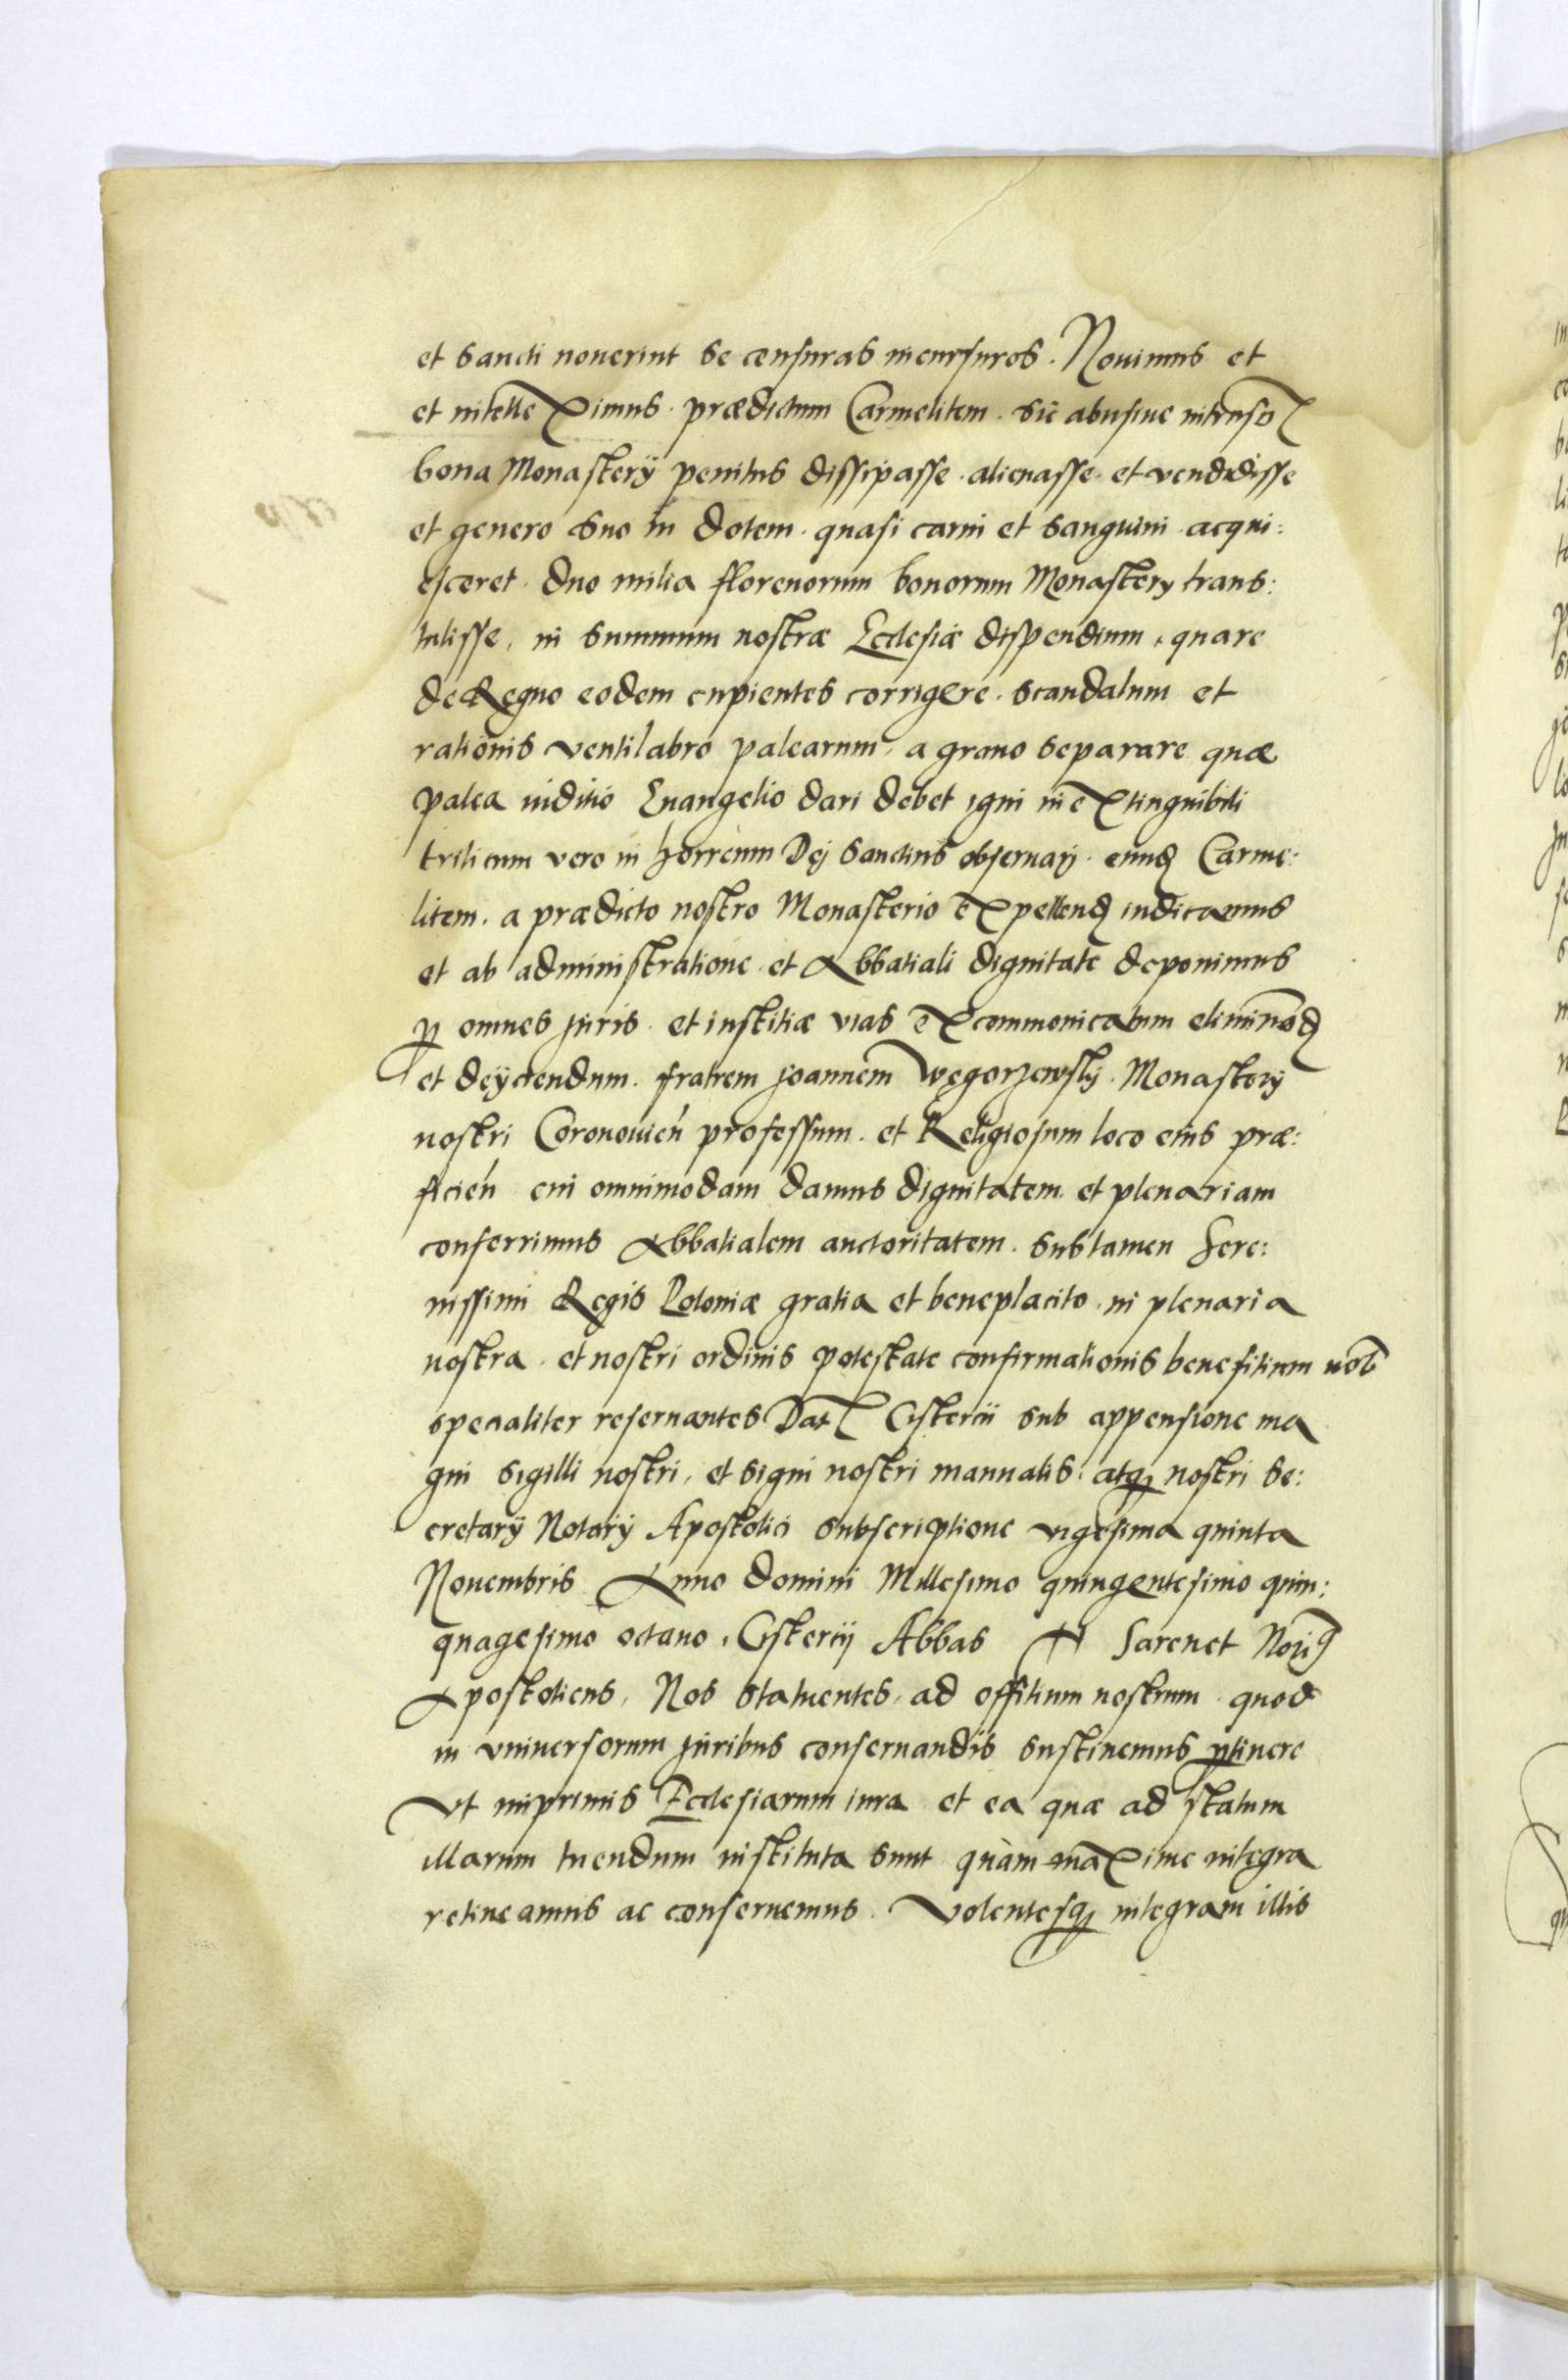 et sancti nouerint se censuras incursuros. Nouimus et
et intelleximus. prædictum Carmelitem. sic abusiue intruso
bona Monasterÿ penitus dissipasse. alienasse. et vendidisse
et genero suo in dotem. quasi carni et sanguini acqui:
esceret. duo milia florenorum bonorum Monastery trans:
tulisse, in summum nostræ Ecclesiæ dispendium, quare
de Regno eodem cupientes corrigere. scandalum et
rationis ventilabro palearum, a grano separare quæ
palea iuditio Euangelio dari debet igni inextinguibili
triticum vero in horreum Dej sanctius obseruarj. eund Carme:
litem. a prædicto nostro Monasterio expellend iudicamus
et ab administratione. et Abbatiali dignitate deponimus
p omnes juris. et iustitiæ vias excommunicatum eliminād
et deÿciendum. fratrem joannem Węgorzewskÿ. Monasterÿ
nostri Coronouień professum. et Religiosum loco eius præ:
ficień cui omnimodam damus dignitatem. et plenariam
conferrimus Abbatialem auctoritatem. sub tamen Sere:
nissimi Regis Poloniæ gratia et beneplacito. in plenaria
nostra. et nostri ordinis potestate confirmationis benefitium nōb
specialiter reseruantes Dat Cistercii sub appensione ma
gni sigilli nostri, et signi nostri manualis: atq nostri se:
cretarÿ Notarÿ Apostolici subscriptione vigesima quinta
Nouembris Anno domini Millesimo quingentesimo quin:
quagesimo octauo, Cistercij Abbas N Sarenet Nori9
Apostolicus, Nos statuentes, ad offitium nostrum quod
in vniuersorum juribus conseruandis sustinemus ptinere
Vt inprimis Ecclesiarum iura et ea quæ ad statum
illarum tuendum instituta sunt quàm maxime integra
retineamus ac conseruemus. Volentesq integram illis